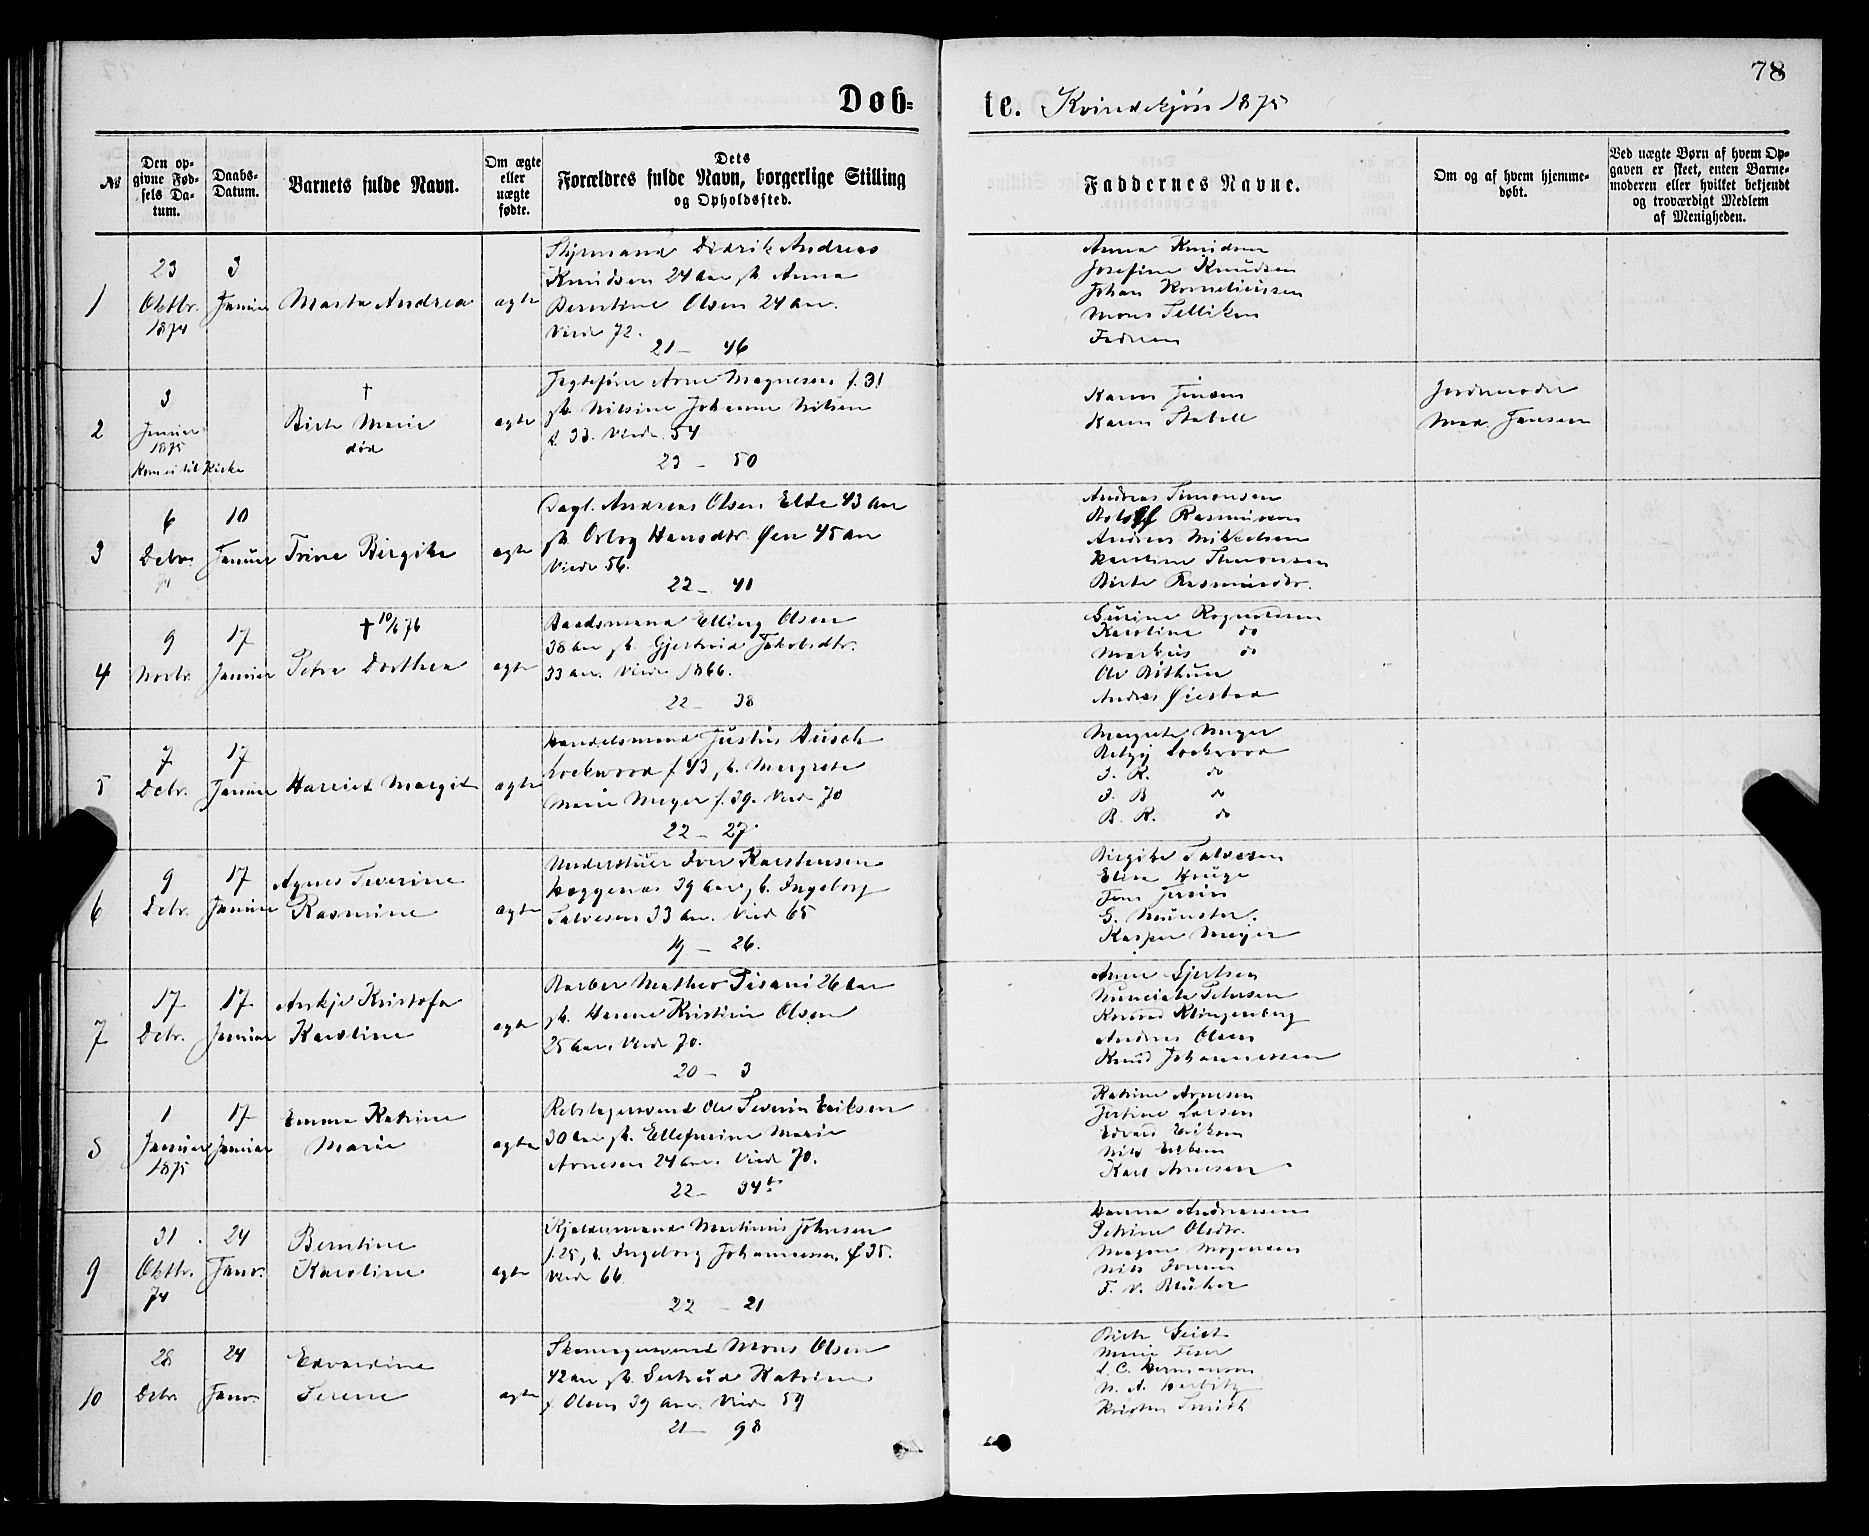 78
Døb= te. Kvindekjøn 1875
№
Den opgivne Fødsels Datum.
Daabs-Datum.
Barnets fulde Navn.
Om ægte eller uægte fødte.
Dets Forældres fulde Navn, borgerlige Stilling og Opholdssted.
Faddernes Navne.
Om og af hvem hjemmedøbt.
Ved uægte Børn af hvem Opgaven er skeet, enten Barnemoderen eller hvilket bekjendt og troværdigt Medlem af Menigheden.
1
23 Oktbr. 1874
3 Januar
Marta Andrea
ægte
Styrmand Didrik Andreas
Knudsen 24 Aar gb. Anna
Berntine Olsen 24 Aar.
Viede 72.
21 - 46
Anna Knudsen
Josefine Knudsen
Johan Korneliussen
Mons
Faderen
2
3 Januar 1875
† Birte Marie død
ægte
Arne Magnesen f. 31
gb. Nilsine Johanne Nilsen
f. 33. Viede 54
23 - 50
Karen Jensen
Karen Stabell
Jordemoder
Mad. Jansen
3
6 Debr. 74
10 Januar
Trine Birgite
ægte
Dagl. Andreas Olsen Elde 43 Aar
gb. Hansdtr. Øen 45 Aar
Viede 56.
22 - 41
Andreas Simonsen
Rasmussen
Andreas Mikkelsen
Simonsen
Birte Rasmusdtr.
4
9 Novbr.
17 Januar
† 10/6 76
Petra Dorthea
ægte
Baadsmand Elling Olsen
38 Aar gb. Gjertrud Jakobsdtr.
33 Aar. Viede 1866.
22 - 38
Karoline do
Markus do
Ole
Andreas
5
7 Debr.
17 Januar
Harriet Margit
ægte
Handelsmand Justus Busch
Lockwood f 43 gb. Margrete
Marie Meyer f. 39. Viede 70
22 - 27
Margrete Meyer
Betzy Lockwood
J. R. do
J. B do
B. R. do
6
9 Debr.
17 Januar
Agnes Severine
Rasmine
ægte
Iver Karstensen
39 Aar gb. Ingeborg
Salvesen 33 Aar. Viede 65
19 - 26.
Birgite Salvesen
Elise Hauge
G. Münster.
Kasper Meyer
7
17 Debr.
17 Januar
Kristofa
Karoline
ægte
Barber Matheo Pisani 26 Aar
gb. Hanne Kristine Olsen
25 Aar. Viede 70.
20 - 3
Anne Gjertsen
Petersen
Konrad Klingenberg
Andreas Olsen
Knud Johannessen
8
1 Januar 1875
17 Januar
Emma Katrine
Marie
ægte
Rebslagersvend Ole Severin Eriksen
30 Aar gb. Marie
Arnesen 24 Aar. Viede 70.
22 - 34
Katrine Arnesen
Larsen
Edvard Eriksen
Nils Eriksen
Karl Arnesen
9
31 Oktbr. 74
24 Janr.
Berntine
Karoline
ægte
Martinus Johnsen
f. 25, gb. Ingeborg Johannessen f 35.
Viede 66.
22 - 21
Hanna Andreassen
Petrine Olsdtr.
Magne Mogensen
Nils
10
28 Debr.
24 Janr.
Edvardine
Serene
ægte
Skomagersvend Mons Olsen
42 Aar gb. Gertrud Katrine
f Olsen 39 Aar. Viede 59
21 - 98
Birte Geist
Marie
L. C. Hermansen
N. A.
Smith